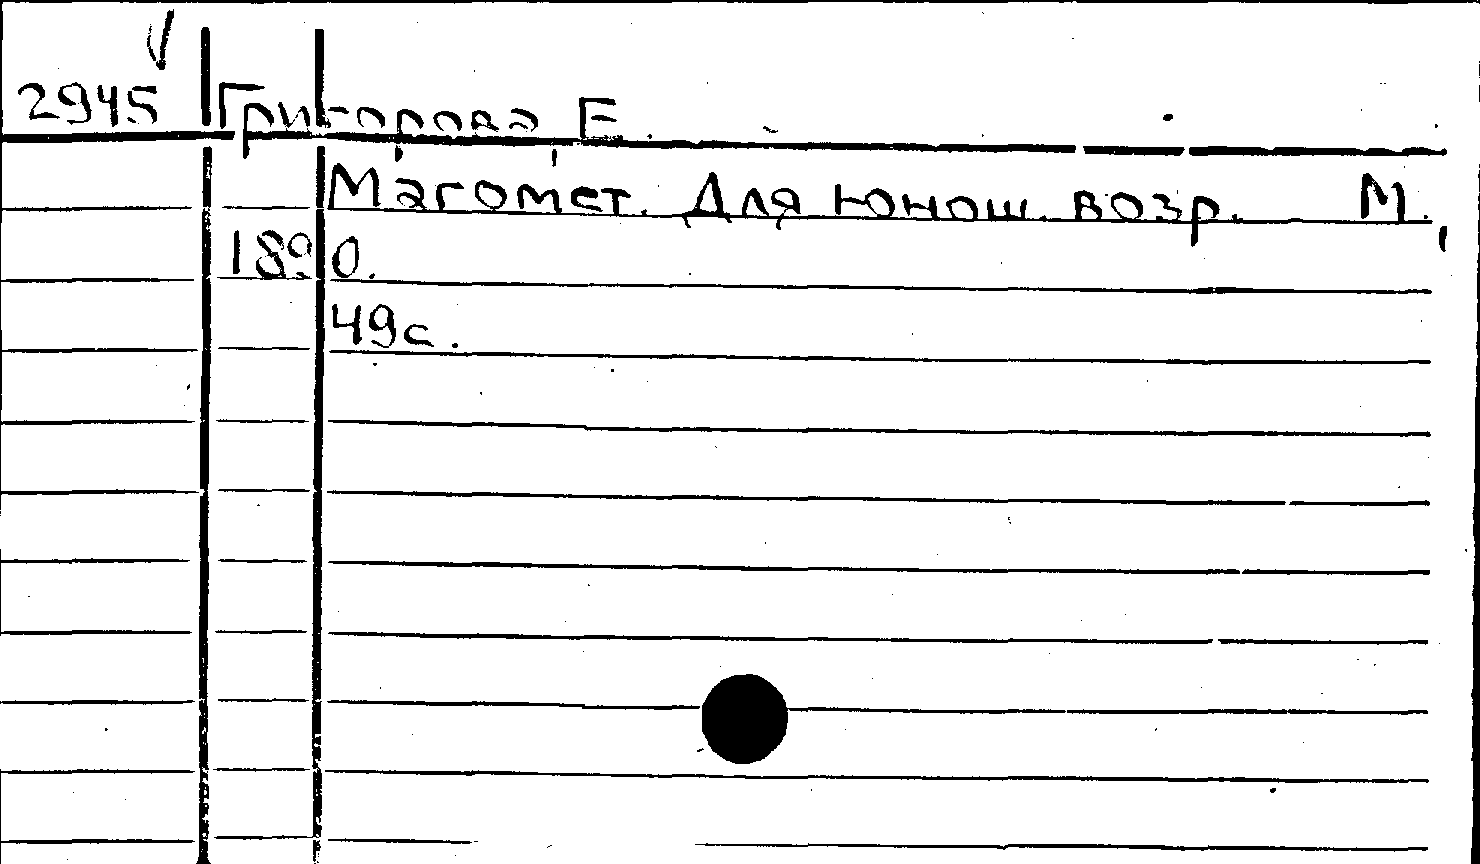 2945 Григорова, Е.
Магомет. Для юнош. возр. М.,
1890.
49с.